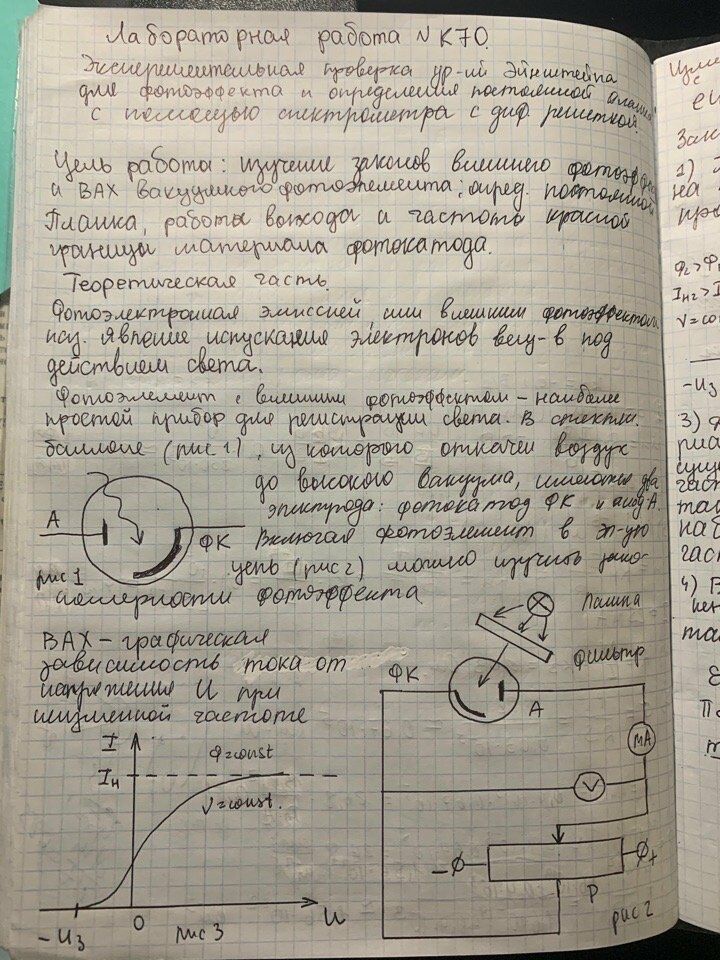 Лабораторная работа N K70.
Эксперементальная проверка ур-ий Эйнштейна
для фотоэффекта и определения постоянной Планка
с помощью спектрометра с диф. решеткой.
Цель работа: изучение законов внешнего фотоэффе
и ВАХ вакуумного фотоэлемента; опред. постоянной
Планка, работы выхода и частоты красной
границы материала фотокатода.
Теоретическая часть.
Фотоэлектронная эмиссией, или внешним фотоэффектом
наз. явление испускания электронов вещ-в под
действием света.
Фотоэлемент с внешним фотоэффектом – наиболее
простой прибор для регистрации света. В стеклян.
баллоне (рис 1), из которого откачен воздух
до высокого вакуума, имеются два
электрода: фотокатод ФК и анод А.
Включая фотоэлемент в эл-ую
цепь (рис 2) можно изучить зако-
номерности фотоэффекта
А
ФК
рис 1
ВАХ – графическая
зависимость тока от
напряжения U при
неизменной частоте
Лампа
фильтр
ФК
А
mA
V
I
Iн
Ф=const
ν=const.
-Uз
0
рис 3
U
-
+
Р
рис 2
с
1)
на
Ф2>Ф
Iн2>I
ν=con
-Uз
3)
4) В